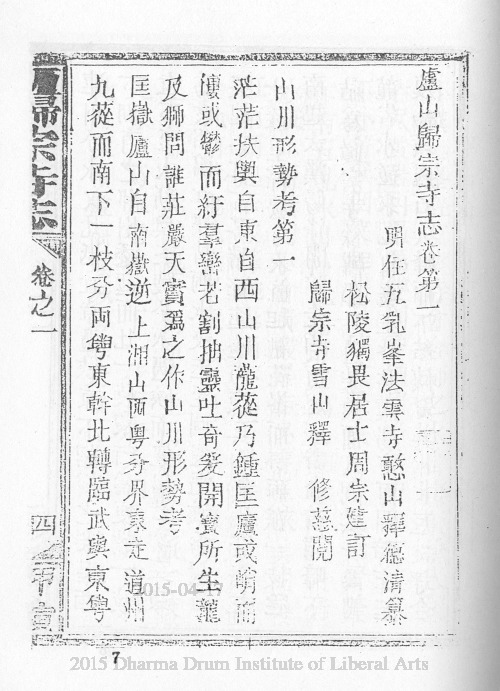 盧山歸宗寺志卷第一
明住五乳峯法雲寺憨山釋德清纂
松陵獨畏居士周宗建訂
歸宗寺雪山釋 修慈閱
山川形勢考第一
茫茫扶輿自東自西山川蘢蓯乃鍾匡廬或峭而
僂或鬱而紆羣巒若割拙靈吐奇爰開實所生龍
及獅問誰莊嚴天實爲之作山川形勢考
匡嶽廬山自南嶽逆上湘山兩粤分界東走道州
九蓯而南下一枝分兩粤東幹北轉臨武奥東粤
廬歸宗寺志
卷之一
四
2015-04-17
7
2015 Dharma Drum Institute of Liberal Arts